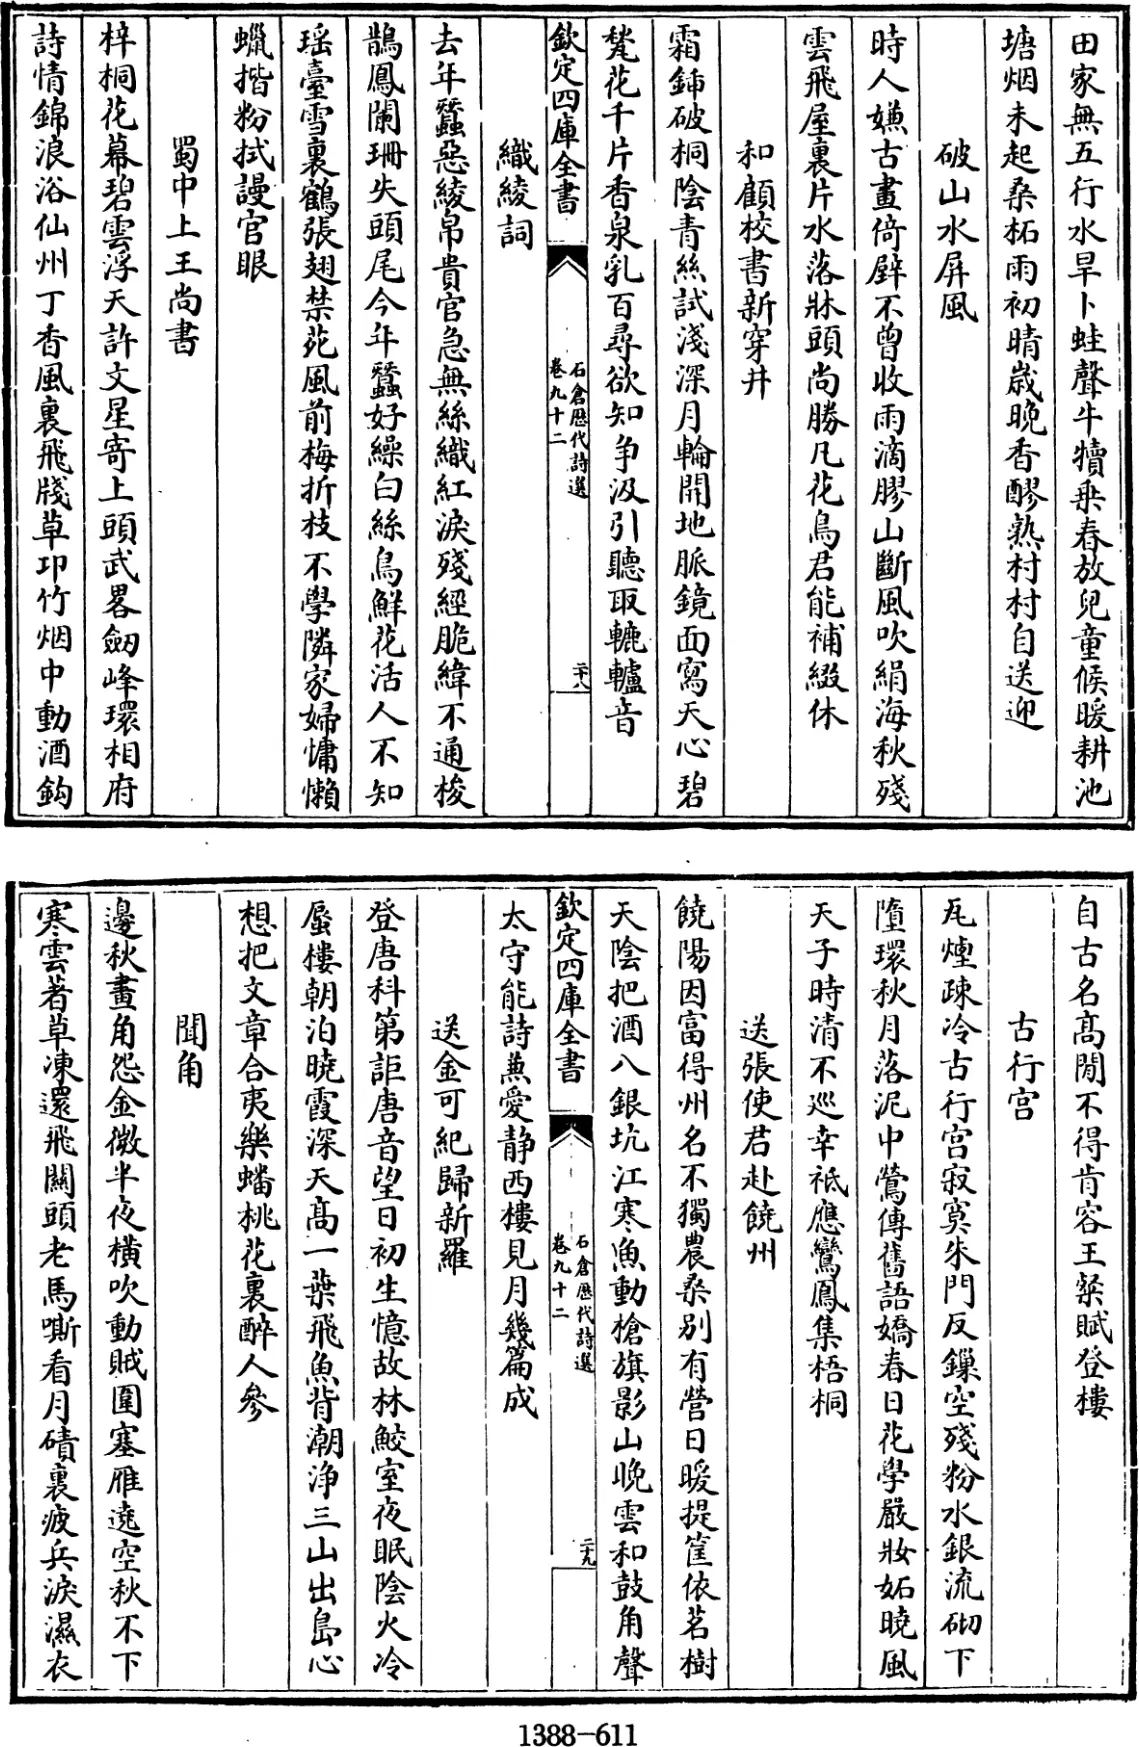 田家無五行水旱卜蛙聲牛犢乗春放兒童候暖耕池
塘烟未起桑柘雨初晴嵗晩香醪熟村村自送迎
破山水屏風
時人嫌古畫倚壁不曾收雨滴膠山斷風吹絹海秋殘
雲飛屋裏片水落牀頭尚勝凡花鳥君能補綴休
和顧校書新穿井
霜鍤破桐陰青絲試淺深月輪開地脈鏡面寫天心碧
甃花千片香泉乳百尋欲知争汲引聽取轆轤音
欽定四庫全書
石倉歷代詩選
卷九十二
二十八
織綾詞
去年蠶惡綾帛貴官急無絲織紅淚殘經脆緯不通梭
鵲鳳闌珊失頭尾今年蠶好繰白絲鳥鮮花活人不知
瑶臺雪裏鶴張翅禁苑風前梅折枝不學隣家婦慵懶
蠟揩粉拭謾官眼
蜀中上王尚書
梓桐花幕碧雲浮天許文星寄上頭武畧劔峰環相府
詩情錦浪浴仙州丁香風裏飛牋草卭竹烟中動酒鈎
自古名髙閒不得肯容王粲賦登樓
古行宫
瓦煙疎冷古行宫寂寞朱門反鏁空殘粉水銀流砌下
墮環秋月落泥中鶯傳舊語嬌春日花學嚴妝妬曉風
天子時清不巡幸祗應鸞鳳集梧桐
送張使君赴饒州
饒陽因富得州名不獨農桑别有營日暖提筐依茗樹
天陰把酒入銀坑江寒魚動槍旗影山晩雲和鼓角聲
欽定四庫全書
石倉歷代詩選
卷九十二
二十九
太守能詩兼愛静西樓見月幾篇成
送金可紀歸新羅
登唐科第詎唐音望日初生憶故林鮫室夜眠陰火冷
蜃樓朝泊曉霞深天髙一葉飛魚背潮浄三山出島心
想把文章合夷樂蟠桃花裏醉人參
聞角
邊秋畫角怨金微半夜横吹動賊圍塞雁遶空秋不下
寒雲著草凍還飛關頭老馬嘶看月磧裏疲兵淚濕衣
1388-611